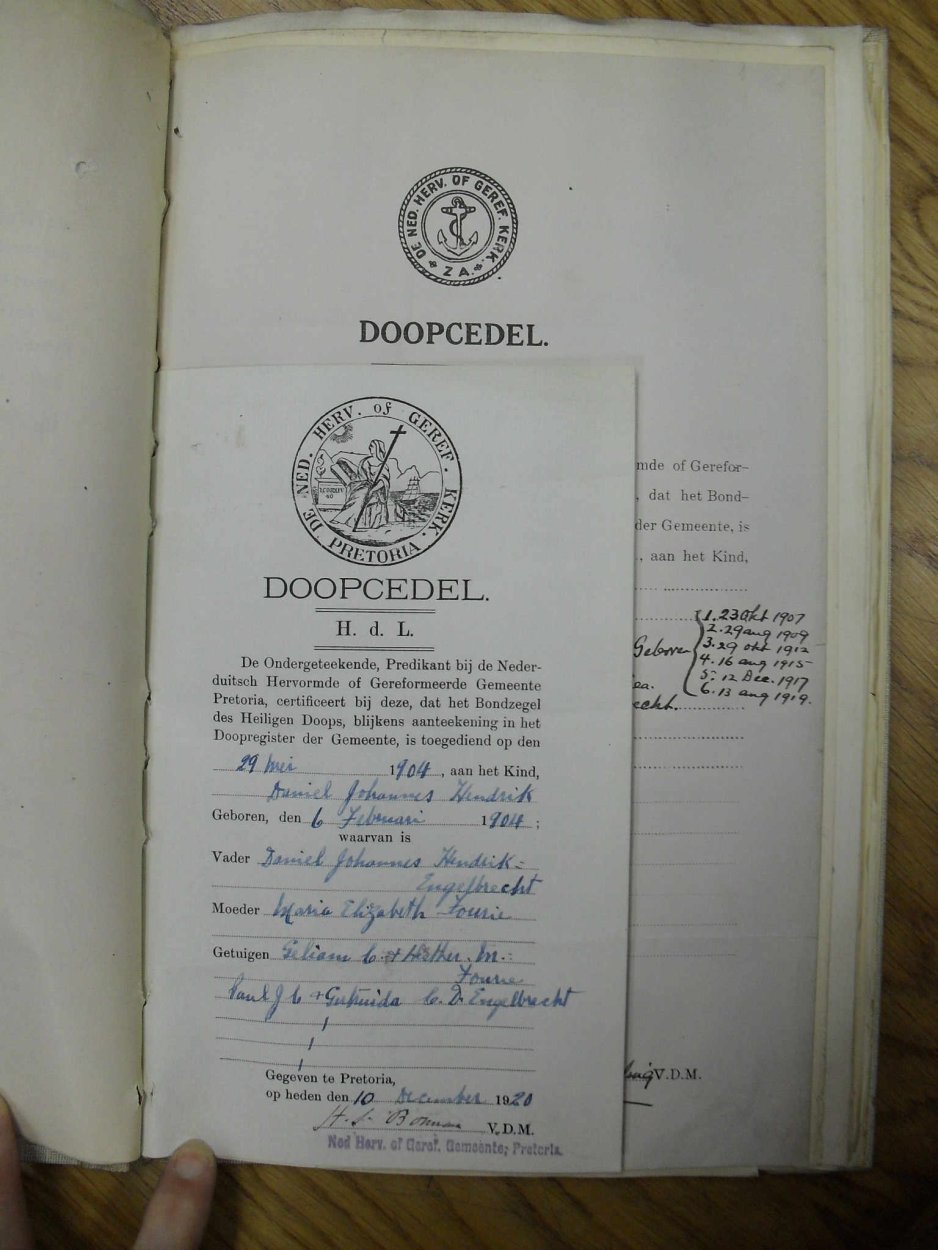 DE NED. HERV. OF GEREF. KERK.
Z A.
DOOPCEDEL.
mde of Gerefor-
, dat het Bond-
der Gemeente, is
., aan het Kind,
1. 23 Okt 1907
2. 29 aug 1909
Geboren 3. 29 okt 1912
4. 16 aug 1915
ea. 5. 12 Dec. 1917
echt. 6. 13 aug 1919.
V.D.M.
DE NED. HERV. of GEREF. KERK.
PRETORIA.
DOOPCEDEL.
H. d. L.
De Ondergeteekende, Predikant bij de Neder-
duitsch Hervormde of Gereformeerde Gemeente
Pretoria, certificeert bij deze, dat het Bondzegel
des Heiligen Doops, blijkens aanteekening in het
Doopregister der Gemeente, is toegediend op den
29 Mei 1904, aan het Kind,
Daniel Johannes Hendrik
Geboren, den 6 Februari 1904;
waarvan is
Vader Daniel Johannes Hendrik
Engelbrecht
Moeder Maria Elizabeth Fourie
Getuigen C. + Hester. M.
Fourie
Paul J C + Gertruida C. D. Engelbrecht
Gegeven te Pretoria,
op heden den 10 December 1920
V.D.M.
Ned Herv. of Geref. Gemeente, Pretoria.